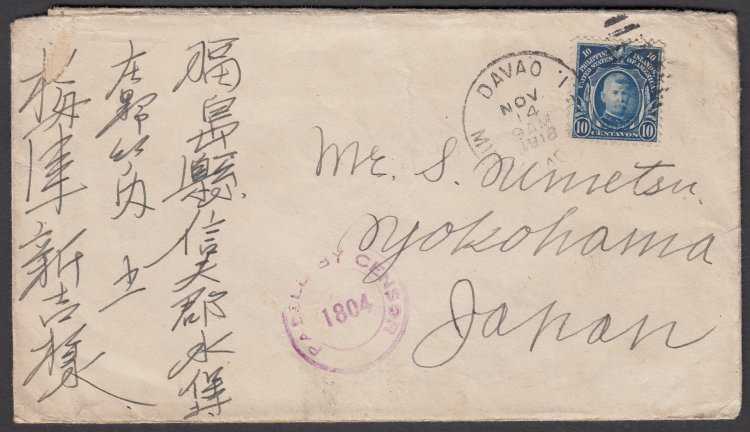 福島縣信夫郡水保
庄野竹ノ内
梅津新吉様
Mr. S. Umetsu.
Yokohama
Japan
DAVAO
NOV
14
1918
10 10
PHILIPPINE ISLANDS
UNITED STATES OF AMERICA
10 CENTAVOS 10
PASSED BY CENSOR
1804